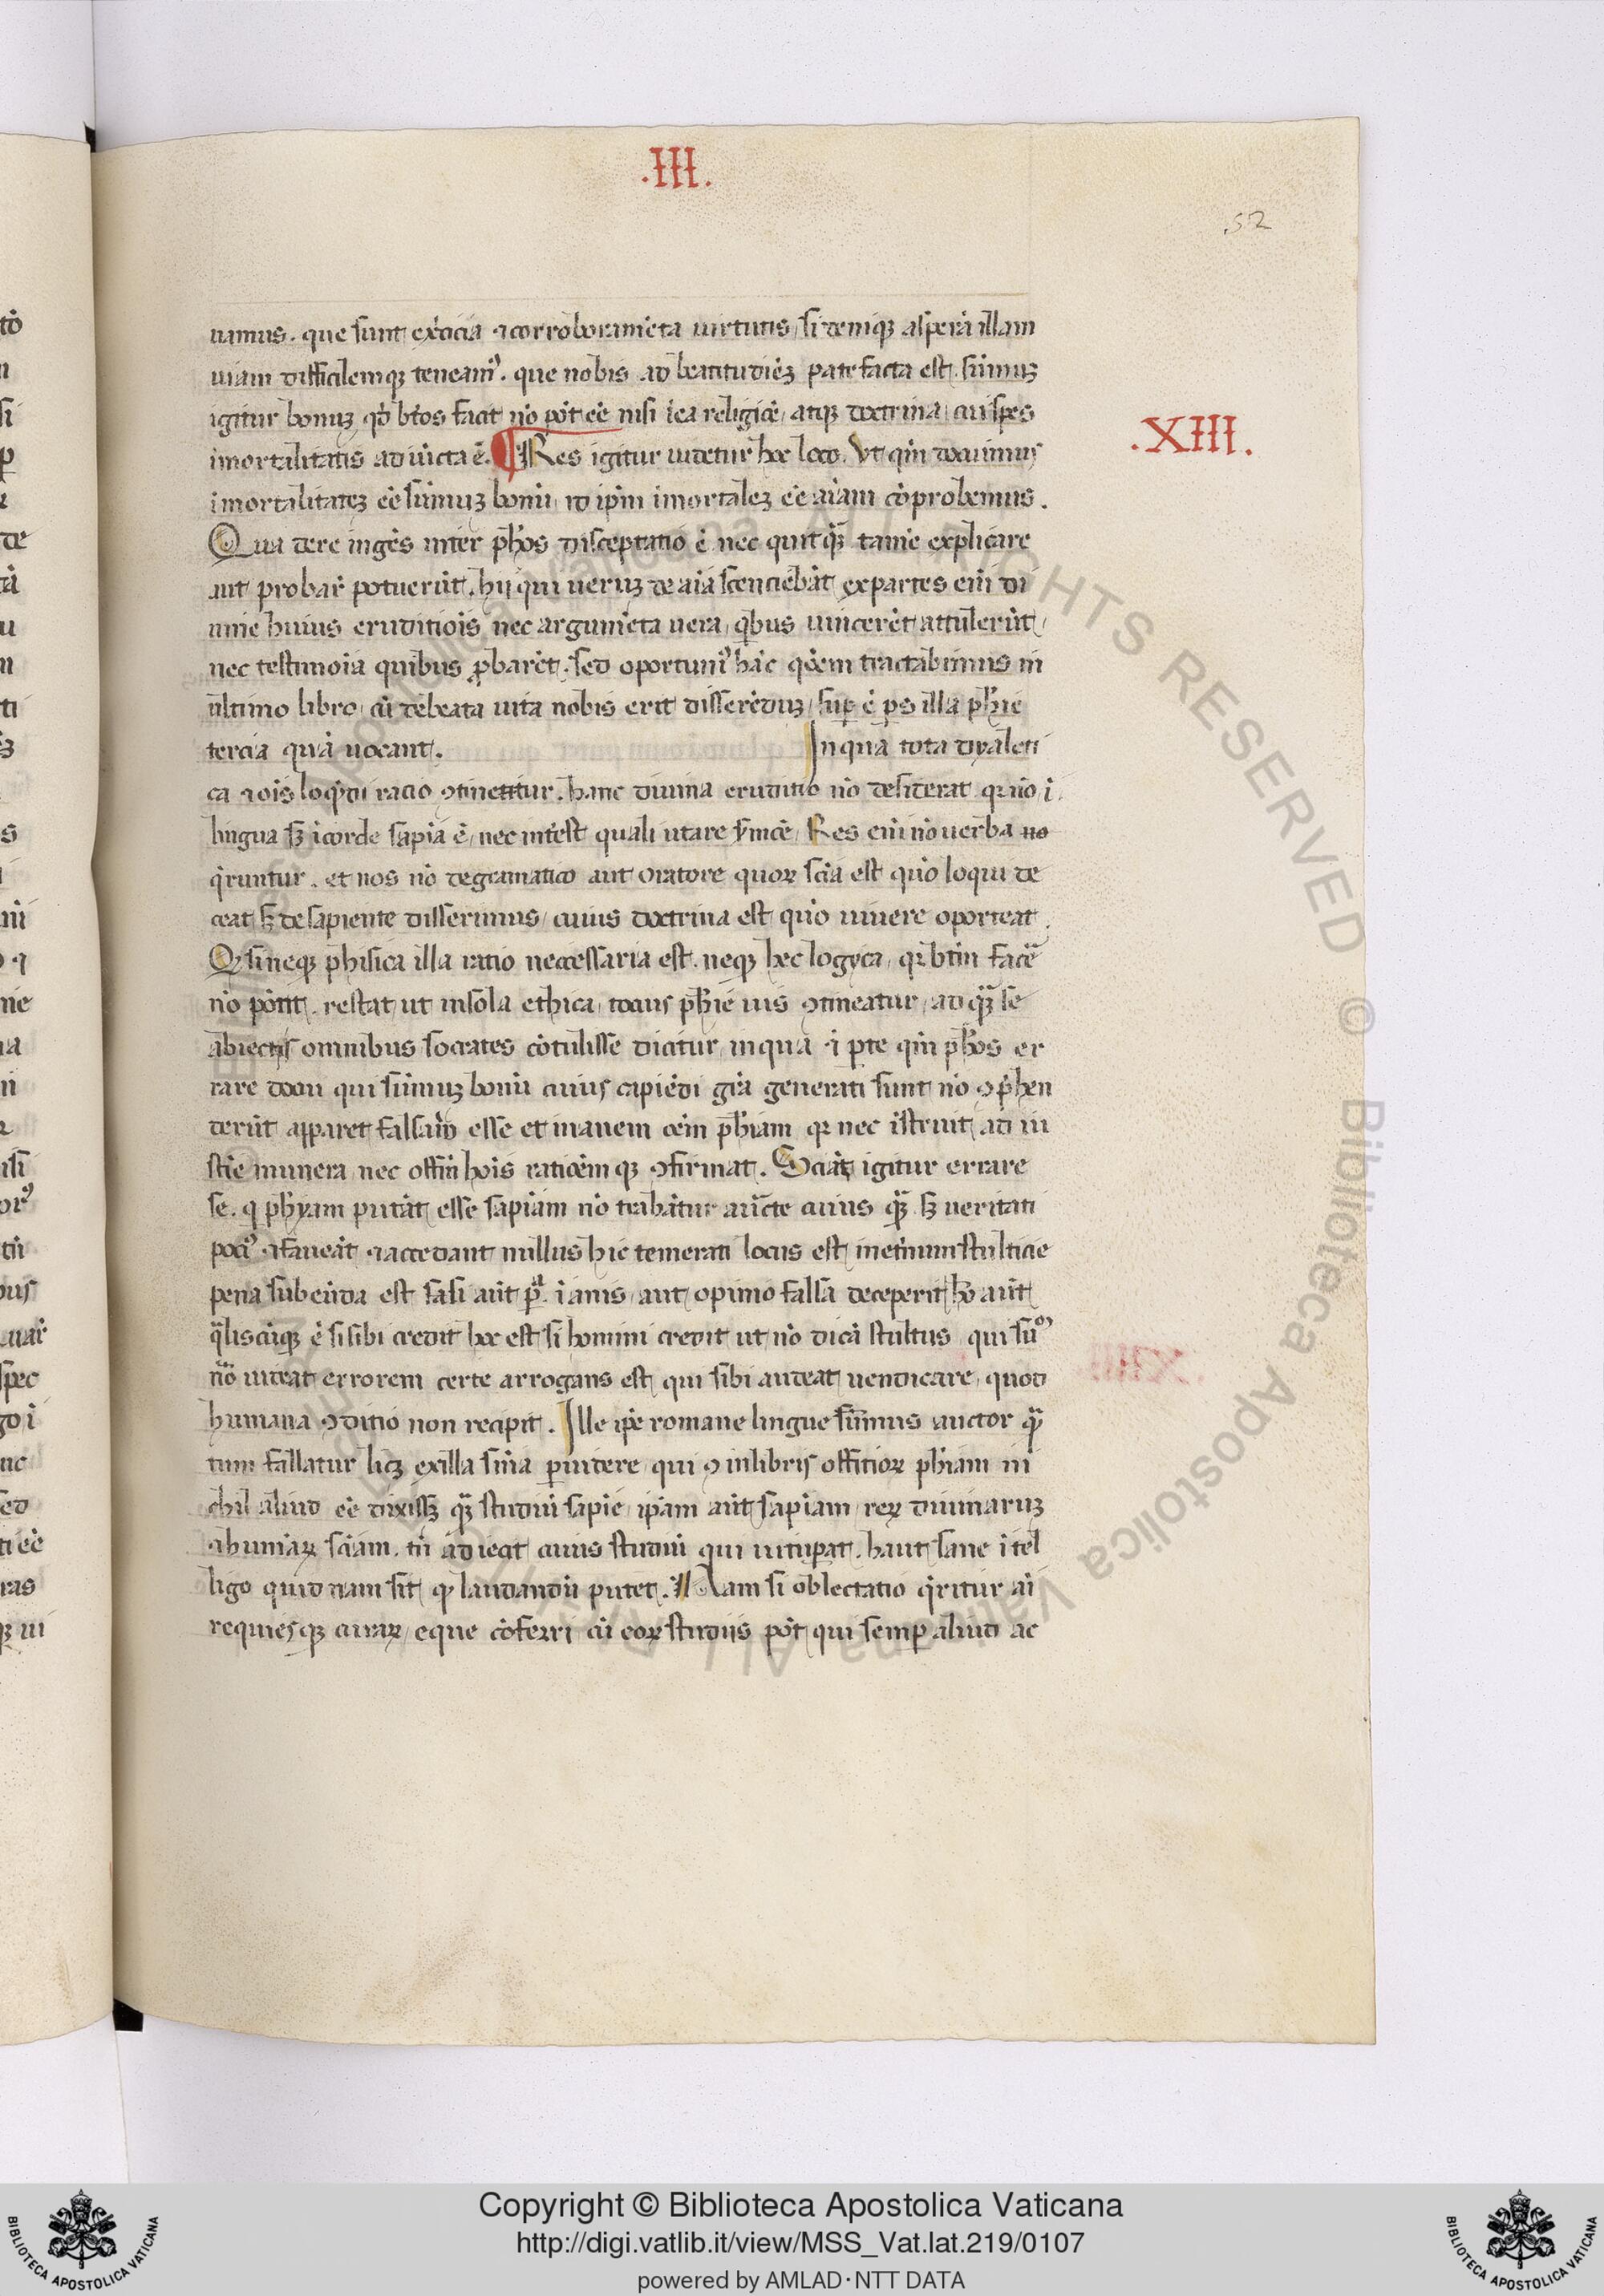 .III.
.52
uamus. que sunt ex̄cicia ⁊ corroboramēta uirtutis, si deniqꝫ asperā illam
uiam difficilemqꝫ teneamꝰ. que nobis ad beatitudiēꝫ patefacta est. sūmuꝫ
igitur bonuꝫ qd̄ bt̄os facit nō pōt eē nisi ī ea religiōe, atqꝫ doctrina, cui spes
.XIII.
imortalitatis adiūcta ē. ¶ Res igitur uidetur hoc loco. Vt qm̄ docuimus
imortalitatēꝫ eē sūmuꝫ bonū, id ip̄m imortaleꝫ eē aīam cōprobemus.
Qua de re ingēs inter ph̄os disceptatio ē nec quitqᷓ tamē explicare
aut probar̄ potuerūt, hij qui ueruꝫ de aīa senciebāt expartes em̄ di
uine huius eruditiōis nec argumēta uera, qͥbus uincerēt attulerūt,
nec testimoīa quibus ꝓbarēt. sed oportunīꝰ hāc qōem tractabimus in
ultimo libro, cū de beata uita nobis erit disserēduꝫ, suꝑ ē ꝑs illa ph̄ie
tercia quā uocant. In qua tota dyaleti
ca ⁊ oīs loqͤdi racio ꝯtinetur. hanc diuina eruditio nō desiderat qꝛ nō ī
lingua sꝫ ī corde sapīa ē, nec intest quali utare s̄mōe, Res em̄ nō uerba no
qͥruntur. et nos nō de gramatico aut oratore quoꝝ scīa est quō loqui de
ceat sꝫ de sapiente disserimus, cuius doctrina est quō uiuere oporteat.
Qꝫ si neqꝫ phisica illa ratio neccessaria est. neqꝫ hec logyca, qꝛ bt̄m facē
nō pōnt. restat ut in sola ethica, tocius ph̄ie uis ꝯtineatur, ad qᷓꝫ se
abiectis omnibus socrates cōtulisse dicitur, in qua ī ꝑte qm̄ ph̄os er
rare docui qui sūmuꝫ bonū cuius capiēdi grā generati sunt nō ꝯp̄hen
derūt apparet falsam esse et inanem oēm ph̄iam qꝛ nec īstruit ad iu
stie munera nec offm̄ hoīs raticēm qꝫ ꝯfirmat. Sciāt igitur errare
se. q ph̄yam putāt esse sapīam nō trahātur auc̄te cuius qᷓꝫ sꝫ ueritati
pociꝰ ⁊ faueāt ⁊ accedant nullus hic temerati locus est in et̄num stulticie
pena subeūda est sasi aūt ꝑ. īanis, aut opimo falsa deceperit, hō aūt
qᷓliscūqꝫ ē si sibi credit hoc est si homini credit ut nō dicā stultus qui suꝰ
nō uideat errorem certe arrogans est qui sibi audeat uendicare, quod
humana ꝯditio non recipit. Ille ip̄e romane lingue sūmus auctor qᷓ
tum fallatur licꝫ ex illa sn̄ia ꝑuidere, qui ꝯ in libris officioꝝ ph̄iam ni
chil aliud eē dixissꝫ qᷓꝫ studiū sapīe, ip̄am aūt sapīam, reꝝ diuinaruꝫ
⁊ humāꝝ scīam. tū adiecit cuius studiū qui uituꝑat. haut sane ītel
ligo quid nam sit qꝫ laudandū putet. Nam si oblectatio qͥritur aī
requiesqꝫ curaꝝ, eque cōferri cū eoꝝ studiis pōt qui semꝑ aliud ac
Copyright © Biblioteca Apostolica Vaticana
http://digi.vatlib.it/view/MSS_Vat.lat.219/0107
powered by AMLAD·NTT DATA